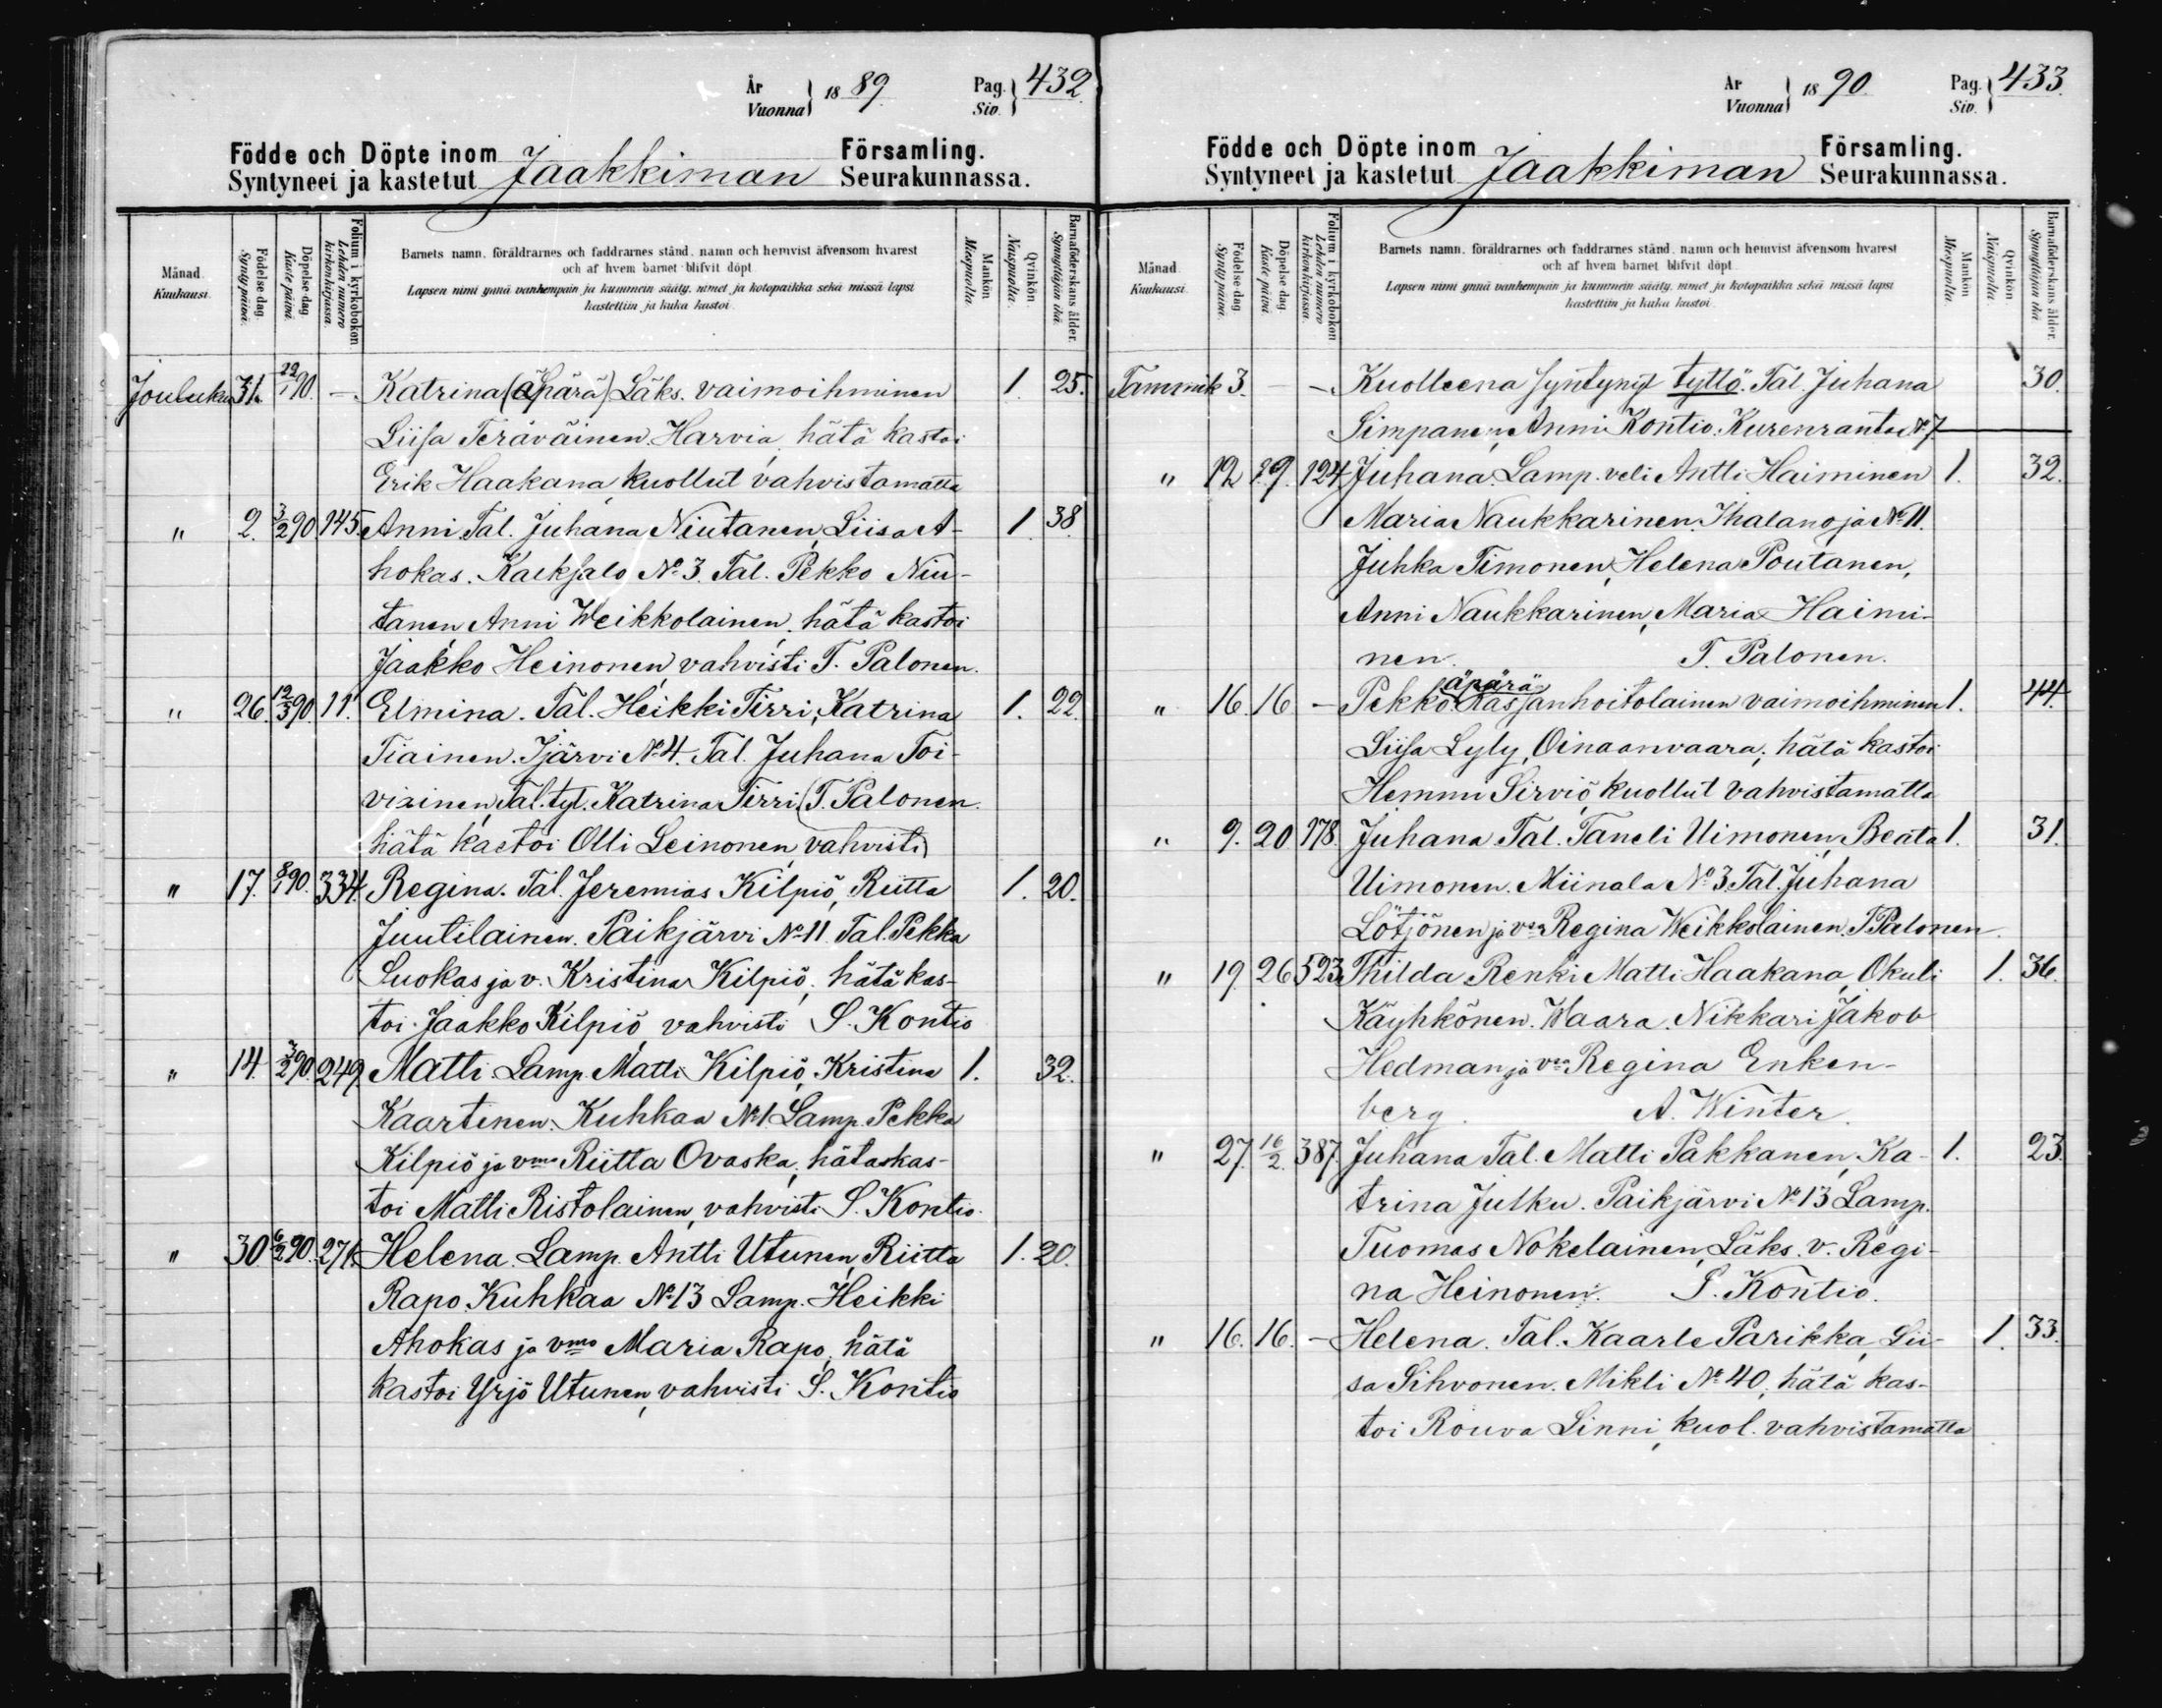 År Vuonna } 18 89 Pag. Siv. } 432
Födde och Döpte inom Jaakkiman Församling.
Syntyneet ja kastetut Seurakunnassa.
Månad. Kuukausi.
Födelse dag. Synty päivä.
Döpelse dag. Kaste päivä.
Folium i kyrkobokon Lehden numero kirkonkirjassa.
Barnets namn, föräldrarnes och faddrarnes stånd, namn och hemvist äfvensom hvarest
och af hvem barnet blifvit döpt.
Lapsen nimi ynnä vanhempain ja kummein sääty, nimet ja kotopaikka sekä missä lapsi
kastettiin ja kuka kastoi.
Mankön Miespuolia.
Qvinkön Naispuolia.
Barnaföderskans ålder. Synnyttäjän ikä.
Jouluku 31. 22/1 90. — Katrina (äpärä) Läks. vaimoihminen 1. 25.
Liisa Teräväinen. Harvia, hätä kastoi
Erik Haakana kuollut vahvistamatta
" 2. 3/2 90 145 Anni. Tal. Juhana Niutanen, Liisa A- 1 38.
hokas. Kaeksalo No 3. Tal. Pekko Niu-
tanen, Anni Weikkolainen. hätä kastoi
Jaakko Heinonen, vahvisti T. Palonen.
" 26. 12/3 90 11. Elmina. Tal. Heikki Tirri, Katrina 1. 22.
Tiainen. Ijärvi No 4. Tal. Juhana Toi-
viainen, Tal. tyt. Katrina Tirri (T. Palonen.
hätä kastoi Olli Leinonen, vahvisti)
" 17. 8/1 90. 334. Regina. Tal. Jeremias Kilpiö, Riitta 1. 20.
Juutilainen. Paikjärvi No 11. Tal. Pekka
Suokas ja v. Kristina Kilpiö. hätä kas-
toi Jaakko Kilpiö, vahvisti S. Kontio
" 14. 3/2 90. 249. Matti. Lamp. Matti Kilpiö, Kristina 1. 32.
Kaartinen. Kuhkaa No 1 Lamp. Pekka
Kilpiö ja vmo Riitta Ovaska, hätaskas-
toi Matti Ristolainen, vahvisti S. Kontio.
" 30 6/2 90. 271. Helena. Lamp. Antti Utunen, Riitta 1. 20.
Rapo. Kuhkaa No 13 Lamp. Heikki
Ahokas ja vmo Maria Rapo, hätä
kastoi Yrjö Utunen, vahvisti S. Kontio
År Vuonna } 18 90. Pag. Siv. } 433.
Födde och Döpte inom Jaakkiman Församling.
Syntyneet ja kastetut Seurakunnassa.
Månad. Kuukausi.
Födelse dag. Synty päivä.
Döpelse dag. Kaste päivä.
Folium i kyrkobokon Lehden numero kirkonkirjassa.
Barnets namn, föräldrarnes och faddrarnes stånd, namn och hemvist äfvensom hvarest
och af hvem barnet blifvit döpt.
Lapsen nimi ynnä vanhempain ja kummein sääty, nimet ja kotopaikka sekä missä lapsi
kastettiin ja kuka kastoi.
Mankön Miespuolia.
Qvinkön Naispuolia.
Barnaföderskans ålder. Synnyttäjän ikä.
Tammik 3. — — Kuolleena syntynyt tyttö. Tal. Juhana 30.
Simpanen, Anni Kontio. Kurenranta No 7
" 12 19. 124 Juhana. Lamp. veli Antti Haiminen 1. 32.
Maria Naukkarinen. Ihalanoja No 11.
Juhka Timonen, Helena Poutanen,
Anni Naukkarinen, Maria Haimi-
nen. T. Palonen.
äpärä
" 16. 16 — Pekko. Kasjanhoitolainen vaimoihminen 1. 44.
Liisa Lyly, Oinaanvaara, hätä kastoi
Hemmi Sirviö kuollut vahvistamatta
" 9. 20 178. Juhana Tal. Taneli Uimonen, Beata 1. 31.
Uimonen. Miinala No 3. Tal. Juhana
Lötjönen ja vmo Regina Weikkolainen. T. Palonen.
" 19. 26 523. Thilda Renki Matti Haakana, Okuli 1. 36.
Käyhkönen. Waara. Nikkari Jakob
Hedman ja vmo Regina Enken-
berg. A. Winter.
" 27. 16/2. 387. Juhana Tal. Matti Pakkanen, Ka- 1. 23.
trina Julku. Paikjärvi No 13 Lamp.
Tuomas Nokelainen, Läks. v. Regi-
na Heinonen. S. Kontio.
" 16. 16. — Helena. Tal. Kaarle Parikka, Lii- 1. 33.
sa Sihvonen. Mikli No 40, hätä kas-
toi Rouva Linni, kuol. vahvistamatta